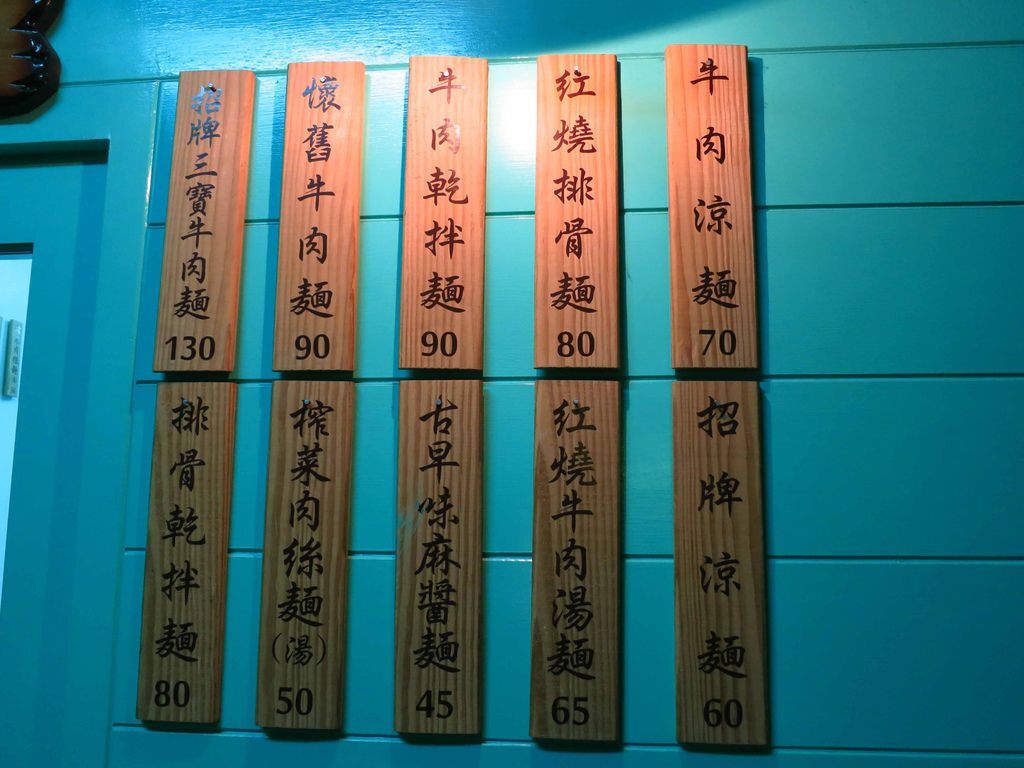 招牌三寶牛肉麵
130
懷舊牛肉麵
90
牛肉乾拌麵
90
紅燒排骨麵
80
牛肉涼麵
70
排骨乾拌麵
80
榨菜肉絲麵(湯)
50
古早味麻醬麵
45
紅燒牛肉湯麵
65
招牌涼麵
60